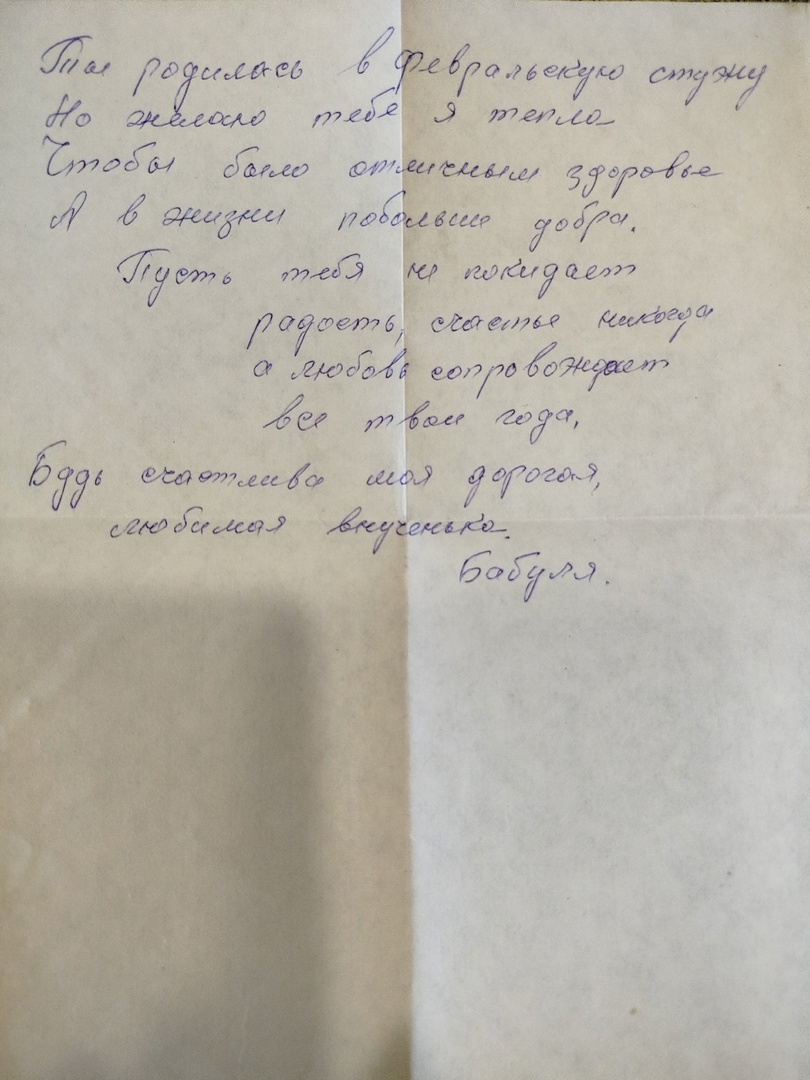 Ты родилась в февральскую стужу
Но желаю тебе я тепла
Чтобы было отличным здоровье
А в жизни побольше добра.
Пусть тебя не покидает
радость, счастье никогда
а любовь сопровождает
все твои года.
Будь счастлива моя дорогая,
любимая внученька.
Бабуля.